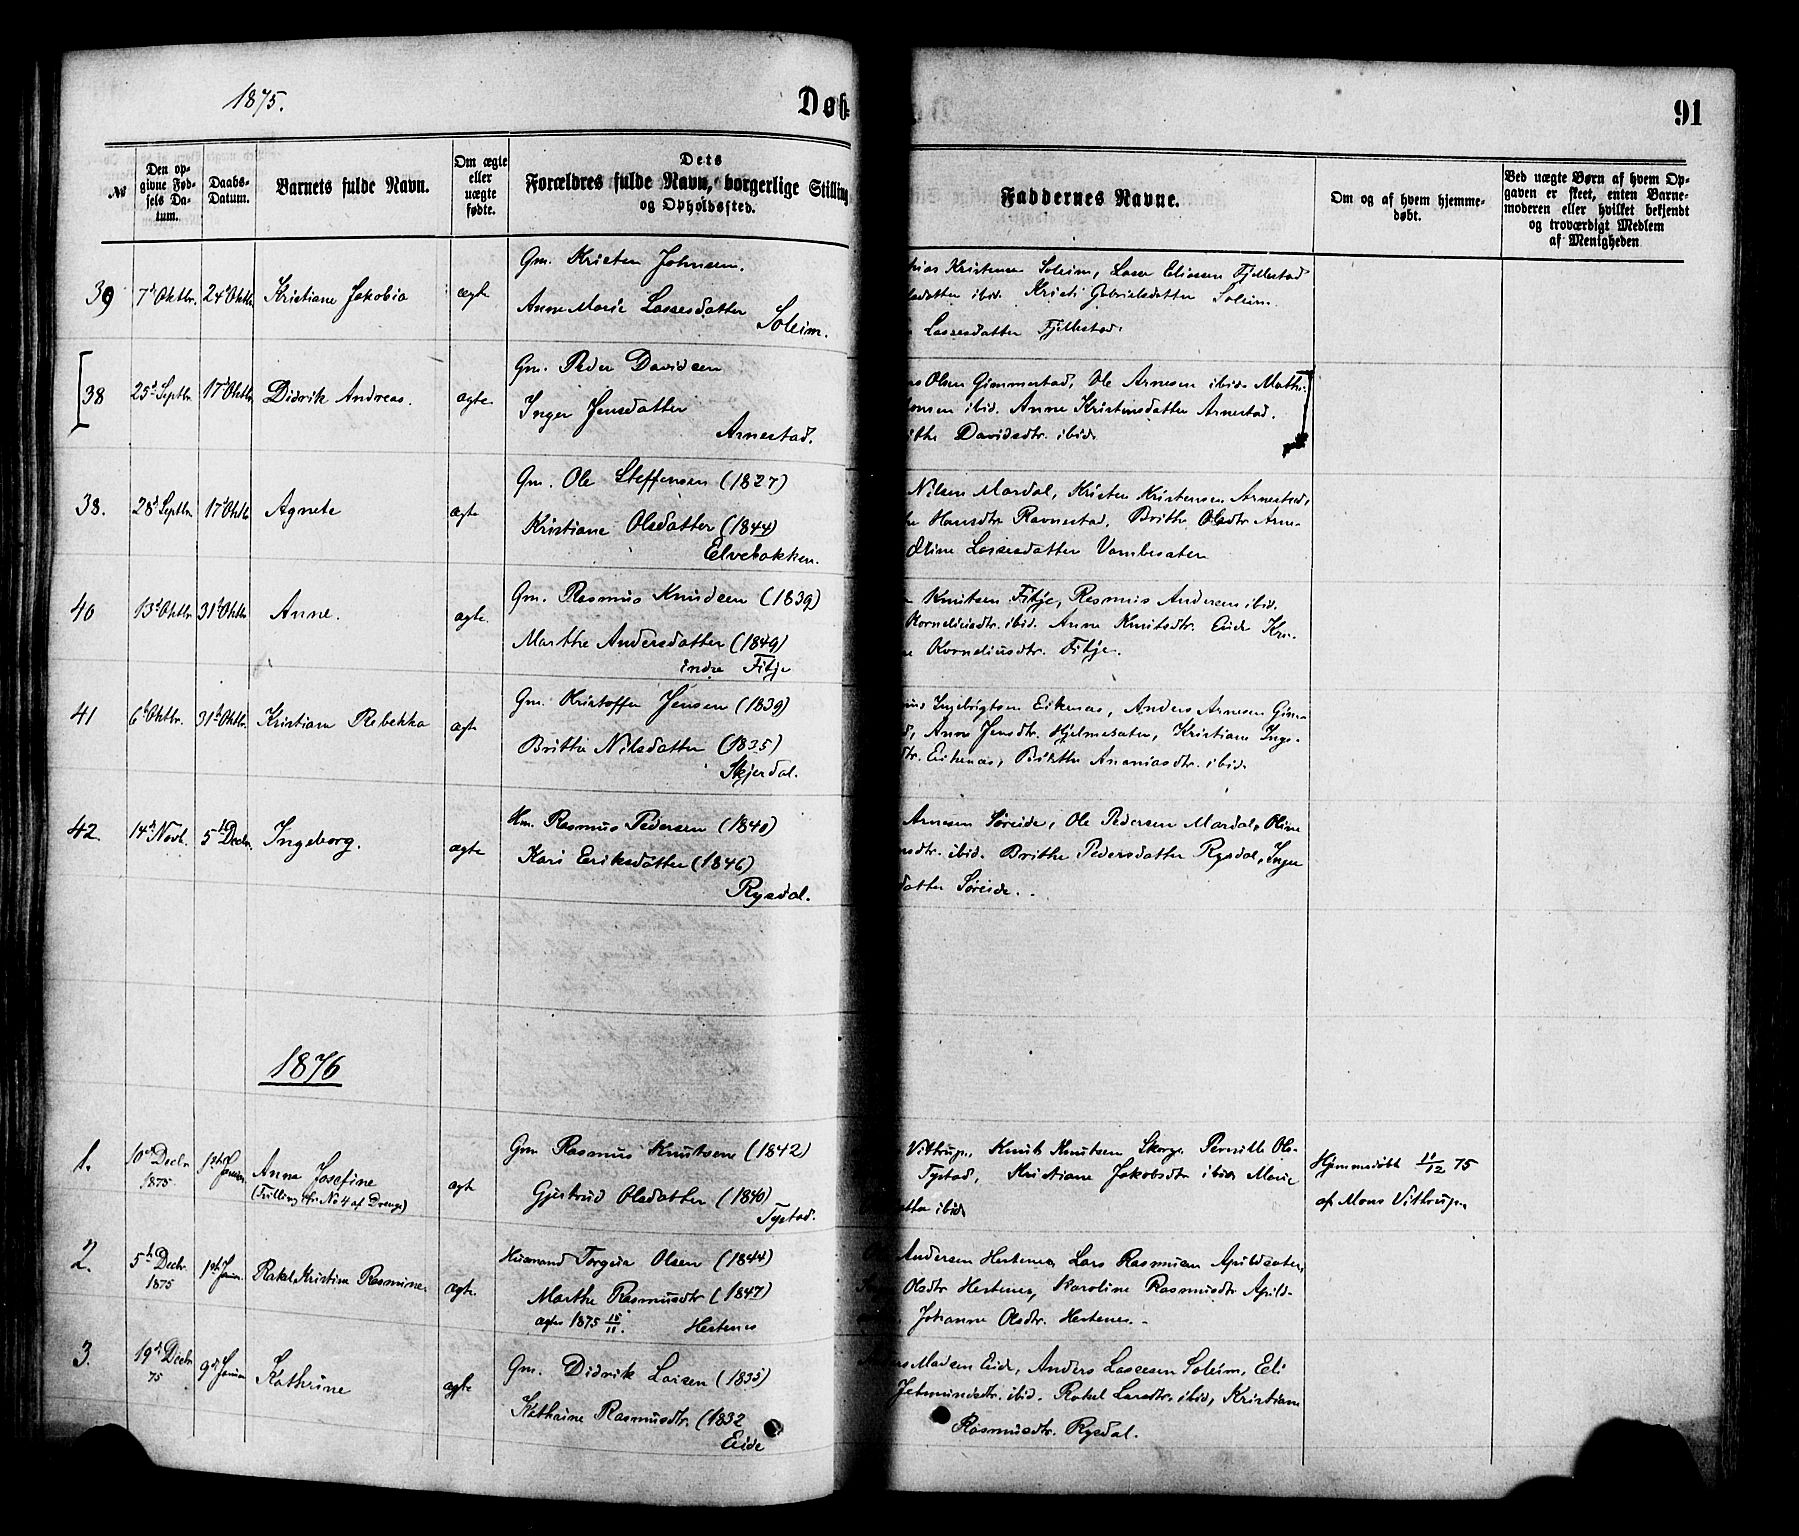 1875.
Døb-
91
№
Den opgivne Fødsels Datum.
Daabs-Datum.
Barnets fulde Navn.
Om ægte eller uægte fødte.
Dets Forældres fulde Navn, borgerlige Stilling og Opholdssted.
Faddernes Navne.
Om og af hvem hjemmedøbt.
Ved uægte Børn af hvem Opgaven er skeet, enten Barnemoderen eller hvilket bekjendt og troværdigt Medlem af Menigheden
39 7d Oktbr. 24d Oktbr Kristiane Jakobia ægte
Gm. Kristen Johnsen.
Anne Marie Lassesdatter
Soleim.
hias Kristensen Soleim, Lasse Eliasen Fjellestad
datter ibid. Kristi Gabrielsdatter Soleim.
Lassesdatter Fjellestad.
[38 25d Septbr. 17d Oktbr Didrik Andreas. ægte
Gm. Peder Davidsen
Inger Jensdatter
Arnestad.
Olsen Gimmestad, Ole Arnesen ibid. Math-
onsen ibid. Anne Kristensdatter Arnestad.
ithe Davidsdtr. ibid.]
38. 28d Septbr 17d Oktbr Agnete ægte
Gm. Ole Steffensen (1827)
Kristiane Olsdatter (1844)
Elvebakken.
Nilsen Mardal, Kristen Kristensen Arnestad,
Hansdtr Ravnestad, Brithe Olsdtr Arne-
Oline Lassesdatter Vambesæter
40 13d Oktbr 31t Oktbr Anne. ægte.
Gm. Rasmus Knudsen (1839)
Marthe Andersdatter (1849)
indre Fitje
Knutsen Fitje, Rasmus Andersen ibid.
Korneliusdtr. ibid. Anne Knutsdtr. Eide Kri-
Korneliusdtr. Fitje.
41 6t Oktbr. 31t Oktbr. Kristiane Rebekka ægte
Gm. Kristoffer Jensen (1839)
Britthe Nilsdatter (1835)
Skjerdal.
Ingebrigtsen Eikenæs, Anders Arnesen Gim-
d, Anne Jensdtr. Hjelmesæter, Kristiane Inge-
tr. Eikenæs, Britthe Ananiasdtr. ibid.
42. 14d Novb. 5t Decbr. Ingeborg. ægte
Hm. Rasmus Pedersen (1840)
Kari Eriksdatter (1846)
Rysdal.
Arnesen Søreide, Ole Pedersen Mardal, Oline
nsdtr. ibid. Brithe Pedersdatter Rysdal, Inger
datter Søreide.
1876
1. 10d Decbr 1875 1st Januar Anne Josefine
(Tvilling fr. No 4 af Drenge)
ægte
Gm Rasmus Knutsen (1842)
Gjertrud Olsdatter (1840)
Tystad.
Vittrup, Knut Knutsen Skorge Pernille Ols-
Tystad, Kristiane Jakobsdtr ibid. Marie
atter ibid.
Hjemmedøbt 11/12 75
af Mons Vittrup.
2. 5t Decbr. 1875 1st Januar. Rakel Kristine Rasmine. ægte.
Husmand Torgeir Olsen (1844)
Marthe Rasmusdtr (1847)
ægtev 1875 15/11. Hestenes
Andersen Hestenes, Lars Rasmusen Apildsæter,
Olsdtr Hestenes, Karoline Rasmusdtr Apild-
Johanne Olsdtr. Hestenes.
3. 19d Decbr 75 9d Januar Kathrine ægte
Gm. Didrik Larsen (1835)
Kathrine Rasmusdtr. (1832
Eide
Madsen Eide, Anders Lassesen Soleim, Eli
Jetmundsdtr. ibid. Rakel Larsdtr. ibid, Kristiane
Rasmusdtr. Rysdal.